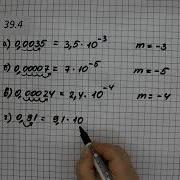 39.4
а) 0,0035 = 3,5 · 10⁻³ m = -3
б) 0,00007 = 7 · 10⁻⁵ m = -5
в) 0,00024 = 2,4 · 10⁻⁴ m = -4
г) 0,91 = 9,1 · 10